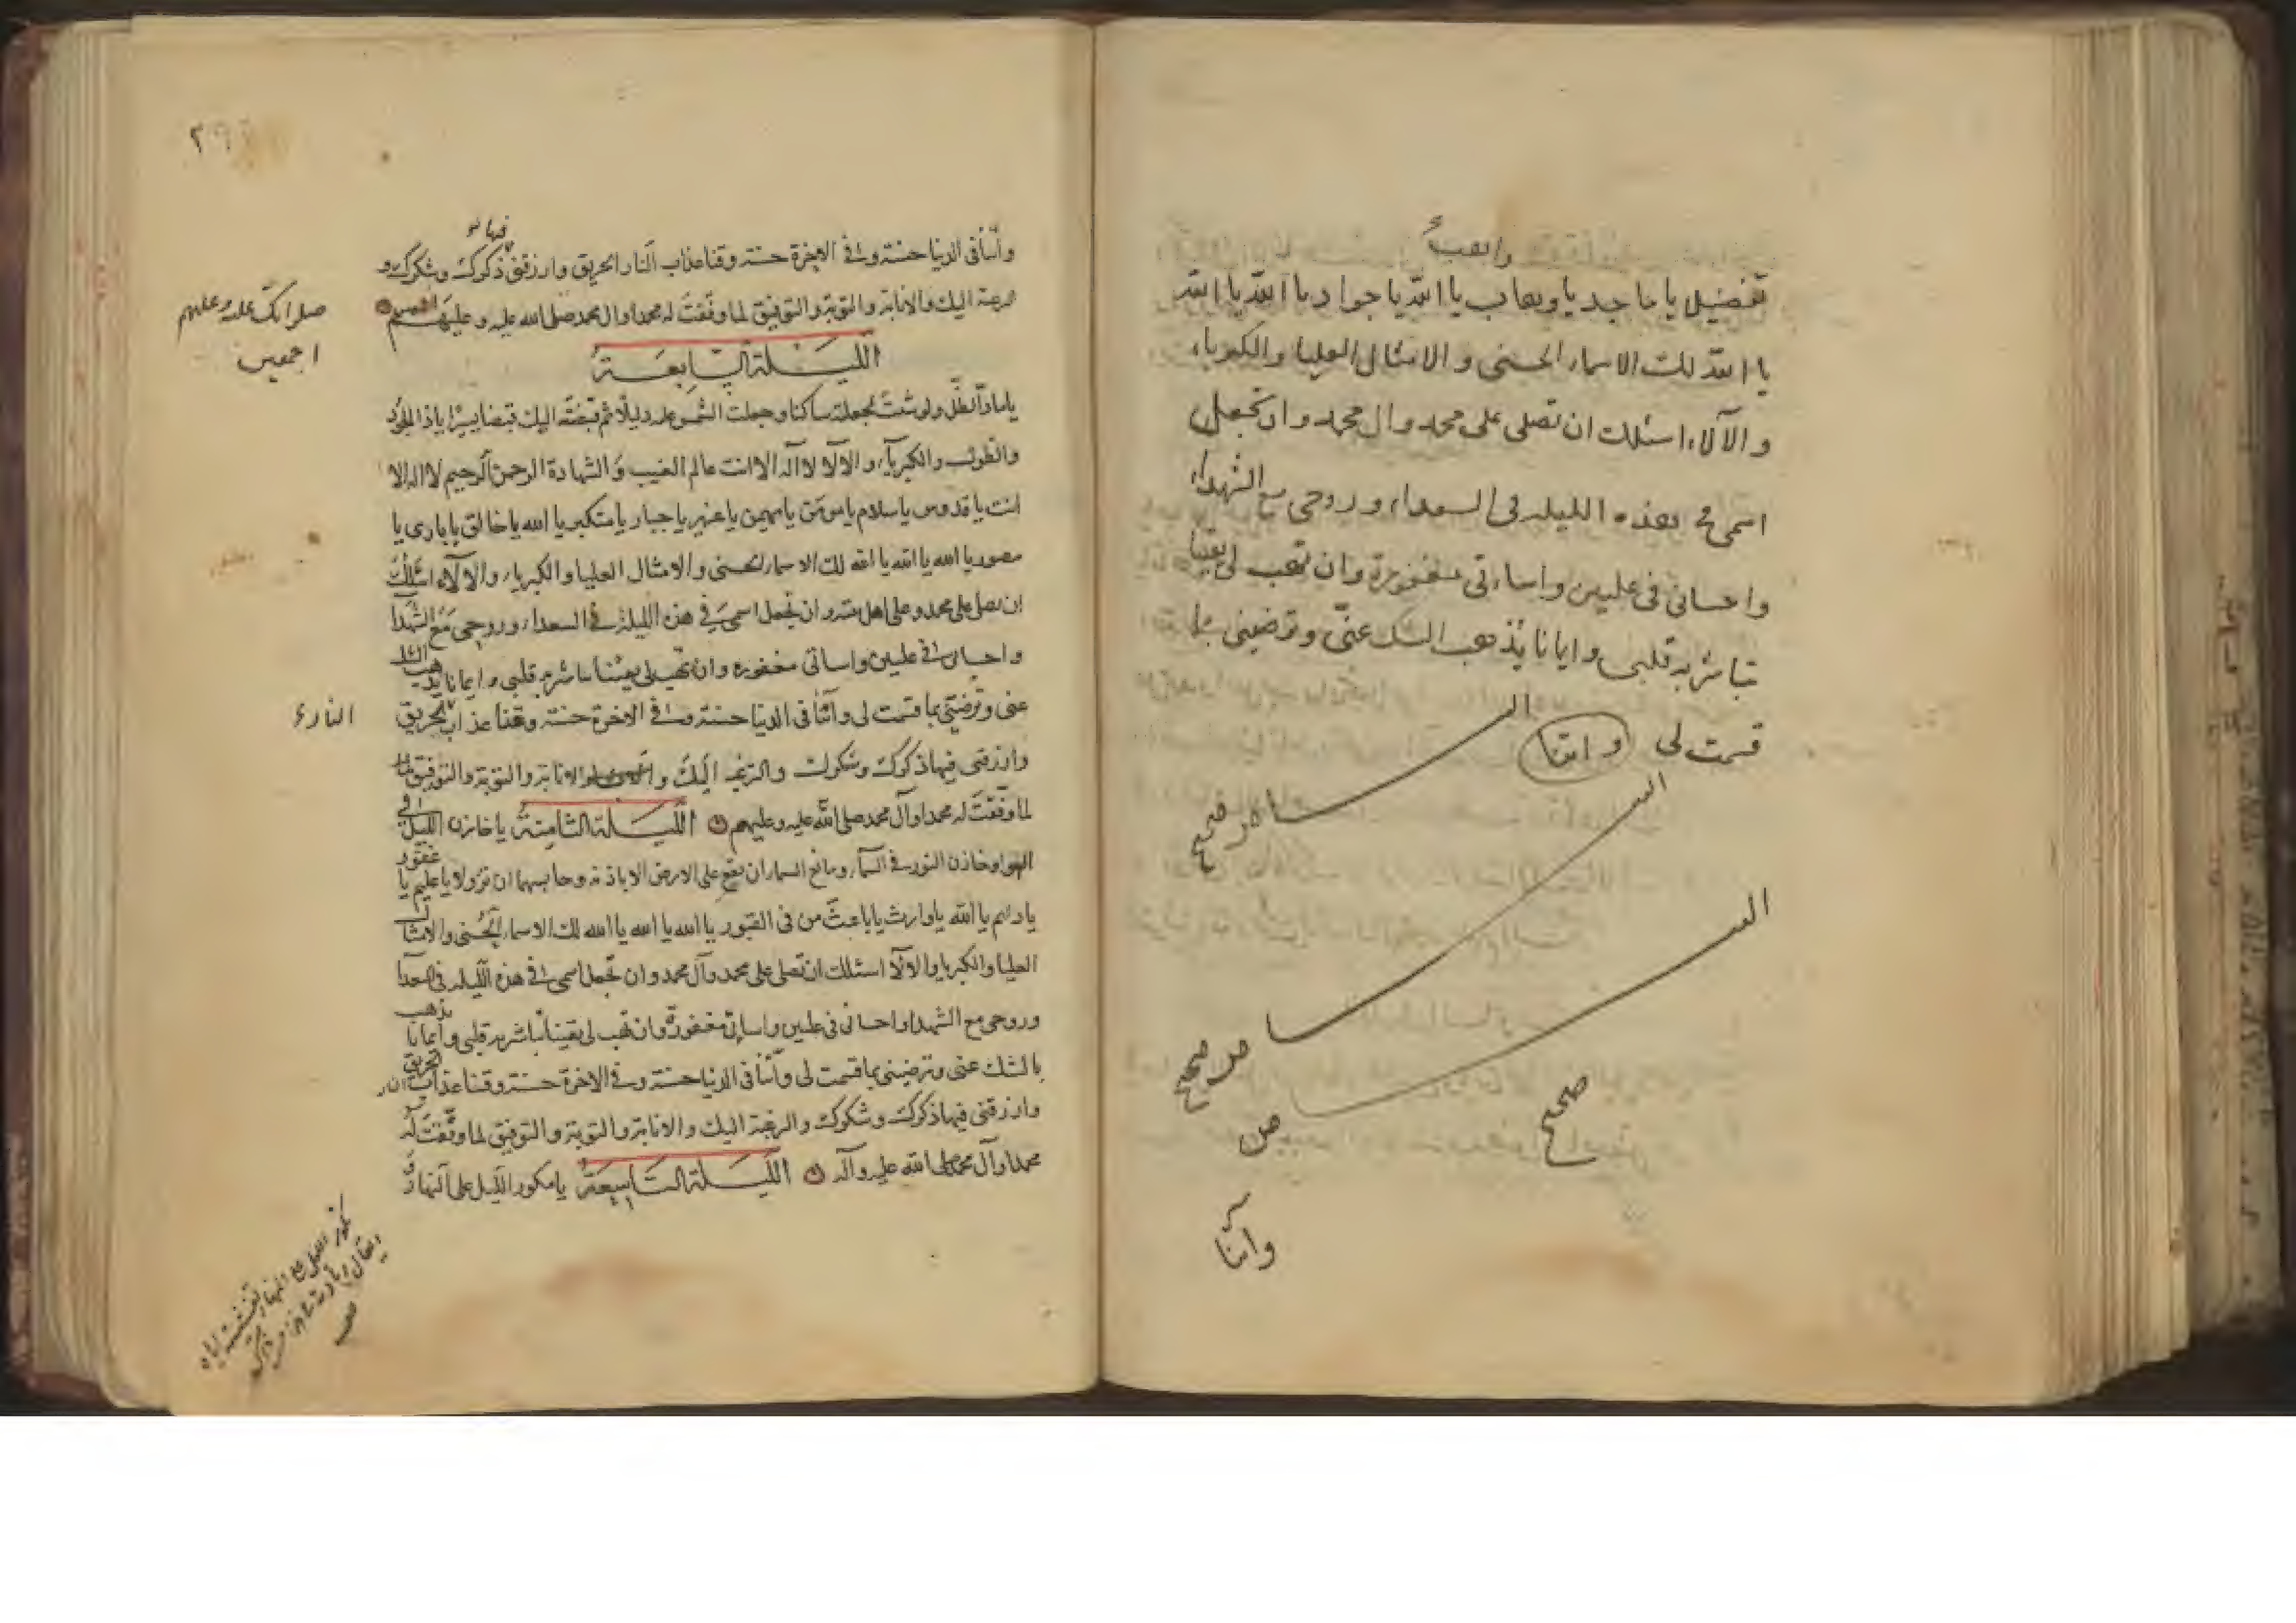 واهب
تفضيل يا ماجد يا وهاب يا الله يا جواد يا الله يا الله
يا الله لك الاسماء الحسنى والامثال العليا والكبرياء
والآلاء اسئلك ان تصلى على محمد وال محمد وان تجعل
اسمى فى هذه الليله فى السعداء وروحى مع الشهداء
واحسانى فى عليين واساءتى مغفورة وان تهب لى يقينا
تباشر به قلبى وايمانا يذهب الشك عنى وترضينى بما
قسمت لى واتنا
صحيح
صحيح
صحيح
واتنا
٢٩
فيها
وآتنا فى الدنيا حسنة وفى الاخرة حسنة وقنا عذاب النار الحريق وارزقنى ذكرك وشكرك و
الرغبة اليك والانابة والتوبة والتوفيق لما وفقت له محمدا وال محمد صلى الله عليه وعليهم
صلواتك عليه وعليهم
اجمعين
الليلة السابعة
يا ماد الظل ولو شئت لجعلته ساكنا وجعلت الشمس عليه دليلا ثم قبضته اليك قبضا يسيرا يا ذا الجود
والطول والكبرياء والآلاء لا اله الا انت عالم الغيب والشهادة الرحمن الرحيم لا اله الا
انت يا قدوس يا سلام يا مومن يا مهيمن يا عزيز يا جبار يا متكبر يا الله يا خالق يا بارى يا
مصور يا الله يا الله يا الله لك الاسماء الحسنى والامثال العليا والكبرياء والآلاء اسئلك
ان تصلى على محمد وعلى اهل بيته وان تجعل اسمى فى هذه الليلة فى السعداء وروحى مع الشهدا
واحسانى فى عليين واساتى مغفوره وان تهب لى يقينا تباشر به قلبى وايمانا يذهب الشك
عنى وترضينى بما قسمت لى وآتنا فى الدنيا حسنة وفى الاخرة حسنة وقنا عذاب الحريق
النار
وارزقنى فيها ذكرك وشكرك والرغبه اليك والانابة والتوبة والتوفيق
لما وفقت له محمدا وآل محمد صلى الله عليه وعليهم الليلة الثامنة يا خازن الليل فى
الهوا وخازن النور فى السماء ومانع السماء ان تقع على الارض الا باذنه وحابسهما ان تزولا يا عليم يا غفور
يا دائم يا الله يا وارث يا باعث من فى القبور يا الله يا الله يا الله لك الاسماء الحسنى والامثال
العليا والكبريا والآلاء اسئلك ان تصلى على محمد وآل محمد وان تجعل اسمى فى هذه الليله فى السعدآ
وروحى مع الشهدا واحسانى فى عليين واساتى مغفورة وان تهب لى يقينا تباشر به قلبى وايمانا يذهب
بالشك عنى وترضينى بما قسمت لى وآتنا فى الدنيا حسنة وفى الاخرة حسنة وقنا عذاب النار الحريق
وارزقنى فيها ذكرك وشكرك والرغبة اليك والانابة والتوبة والتوفيق لما وفقت له
محمدا وآل محمد صلى الله عليه وآله الليلة التاسعة يا مكور الليل على النهار و
تكوير الليل على النهار تغشيته اياه